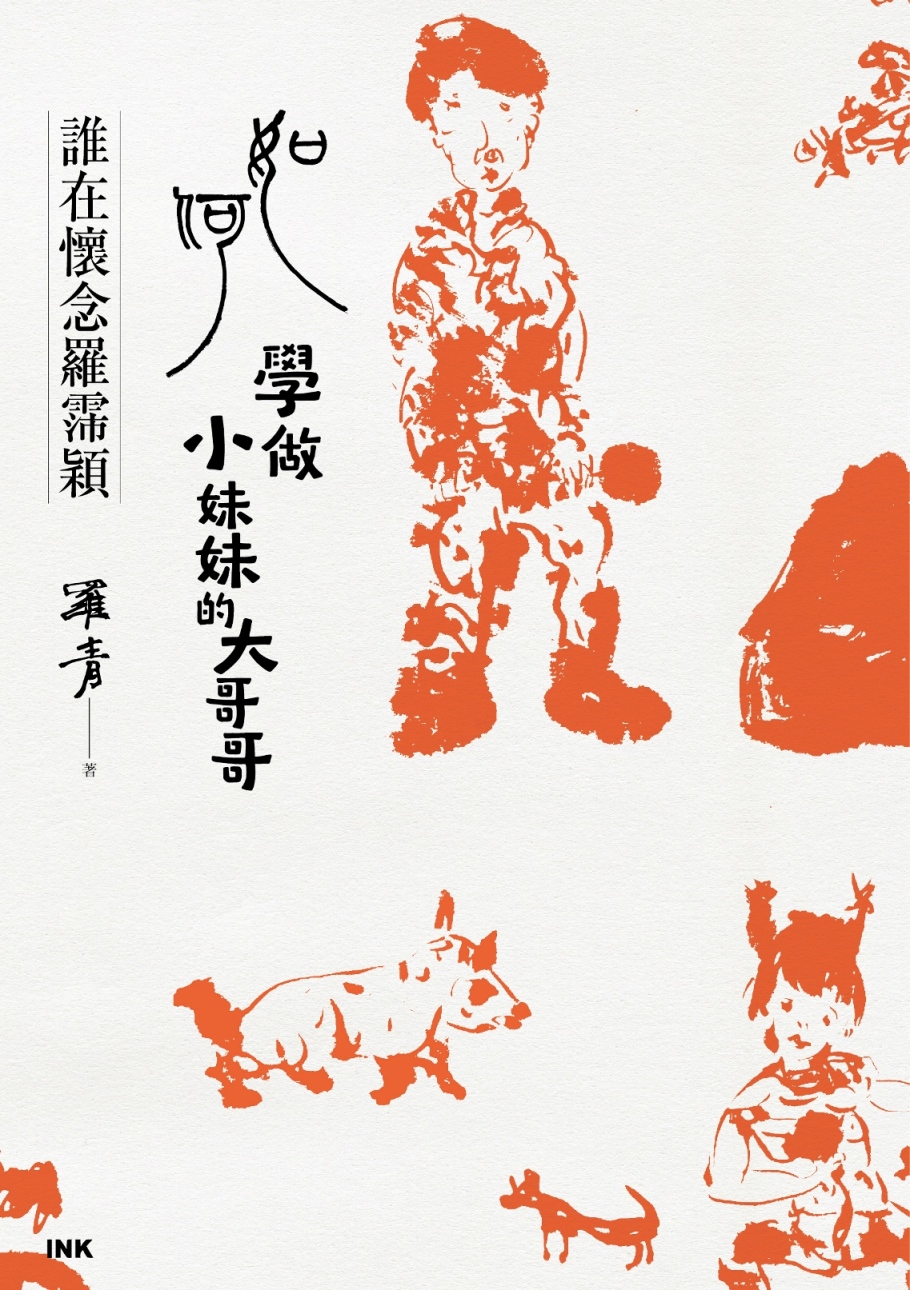 如何
學做
小妹妹的大哥哥
誰在懷念羅霈穎
羅青
著
INK